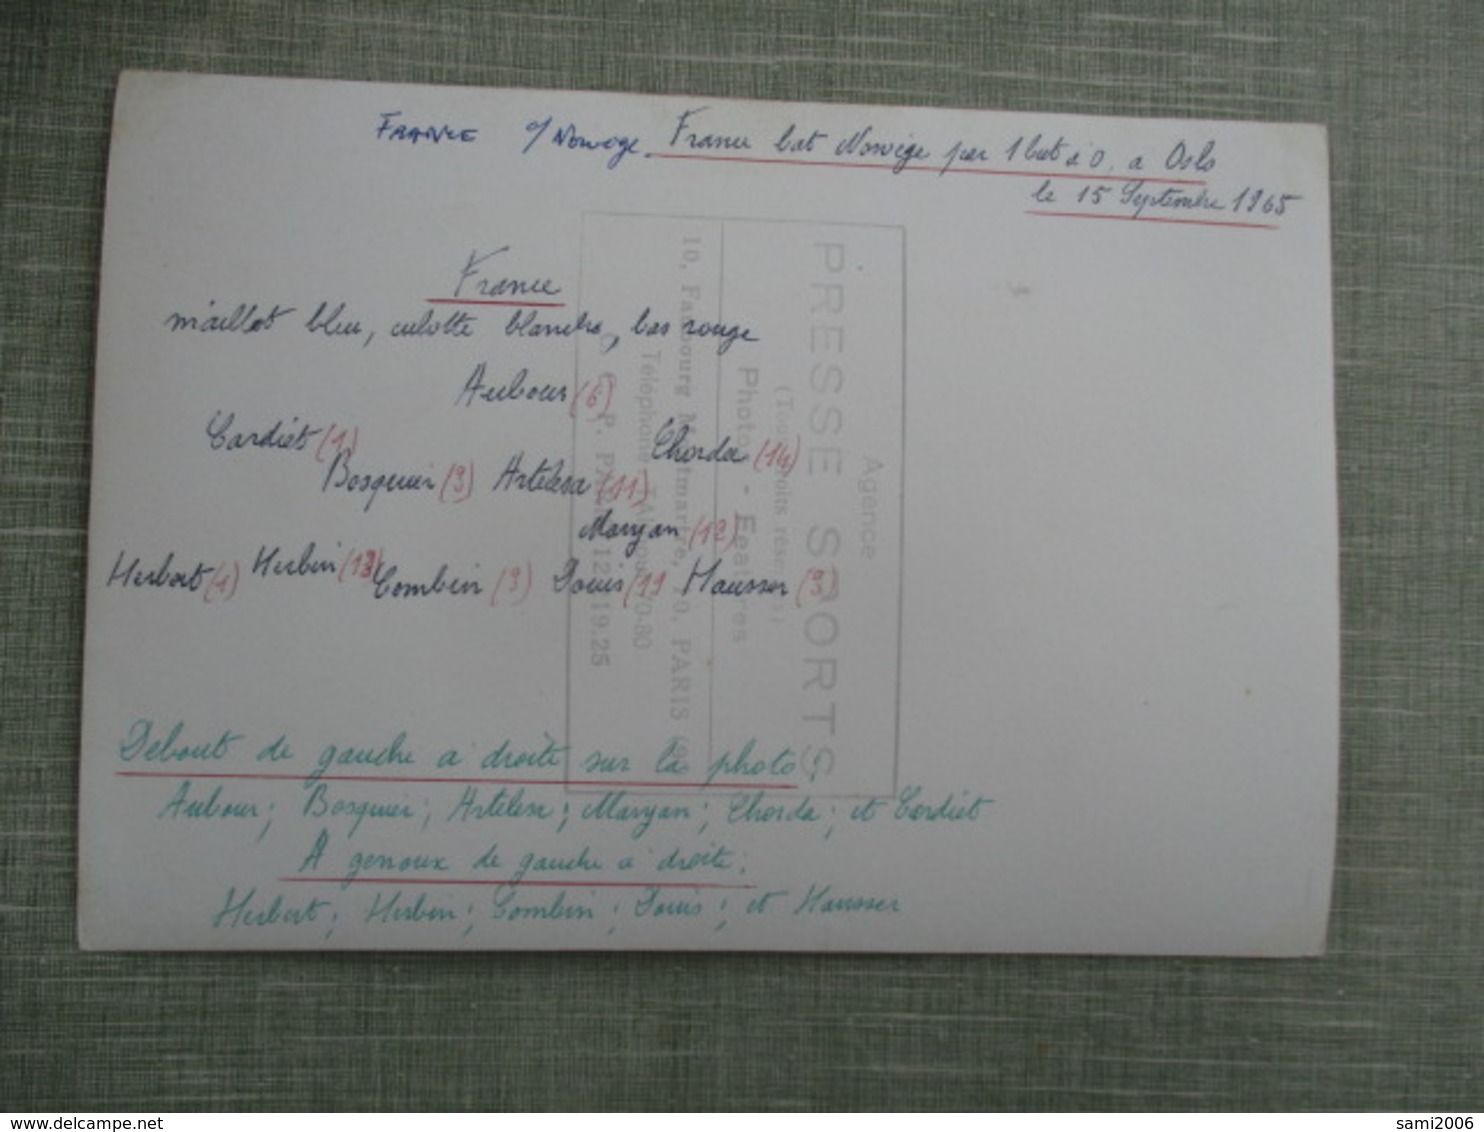 FRANCE c/ Norvege. France bat Norvège par 1 but à 0. a Oslo
le 15 Septembre 1965
France
maillot bleu, culotte blanche, bas rouge
Aubour (6)
Cardiet (1) Chorda (14)
Bosquier (9) Artelesa (11)
Maryan (12)
Herbet (1) Herbin (13) Combin (9) Douis (19 Hausser (9)
Debout de gauche a droite sur la photo:
Aubour; Bosquier; Artelesa; Maryan; Chorda; et Cardiet
A genoux de gauche a droite:
Herbet; Herbin; Combin; Douis; et Hausser
Agence
PRESSE SPORTS
(Tous droits réservés)
Photos - Features
10, Faubourg Montmartre, 10, PARIS (9
Téléphone: 70-80
C. C. P. PARIS 12 19.25
delcampe.net
sami2006